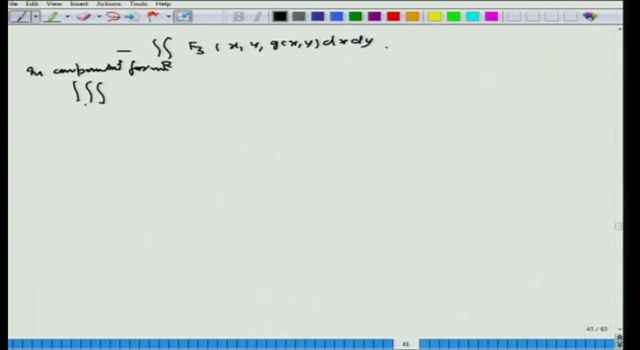 File Edit View Insert Actions Tools Help
B I
— ∫∫ F₃ (x, y, g(x,y)) dx dy.
R
In component form
∫∫∫
41 / 61
41